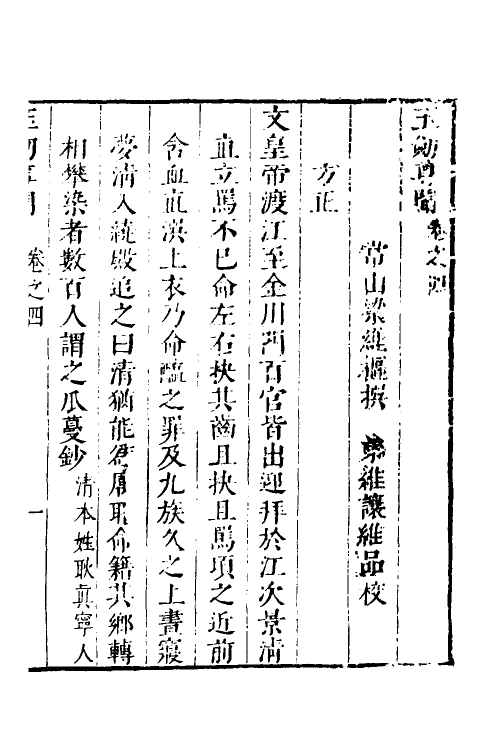 玉劔尊聞卷之四
常山梁維樞撰　梁維讓維品校
方正
文皇帝渡江至金川門百官皆出迎拜於江次景清
直立罵不已命左右抉其齒且抉且罵項之近前
含血直噀上衣乃命醢之罪及九族久之上晝寢
夢清入繞殿追之曰清猶能為厲耶命籍其鄉轉
相攀染者數百人謂之瓜蔓鈔清本姓耿真寧人
玉劔尊聞　卷之四　一